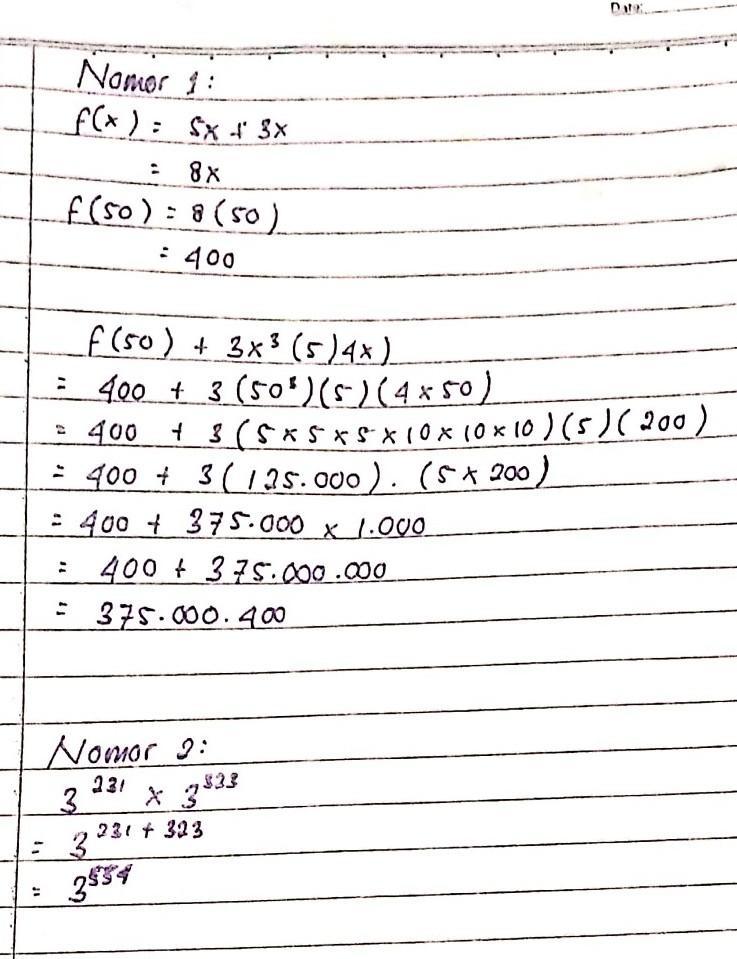 Date:
Nomor 1:
f(x) = 5x + 3x
= 8x
f(50) = 8(50)
= 400
f(50) + 3x³(5)4x)
= 400 + 3(50³)(5)(4×50)
= 400 + 3(5×5×5×10×10×10)(5)(200)
= 400 + 3(125.000).(5×200)
= 400 + 375.000 × 1.000
= 400 + 375.000.000
= 375.000.400
Nomor 2:
3²³¹ × 3³²³
= 3²³¹⁺³²³
= 3⁵⁵⁴